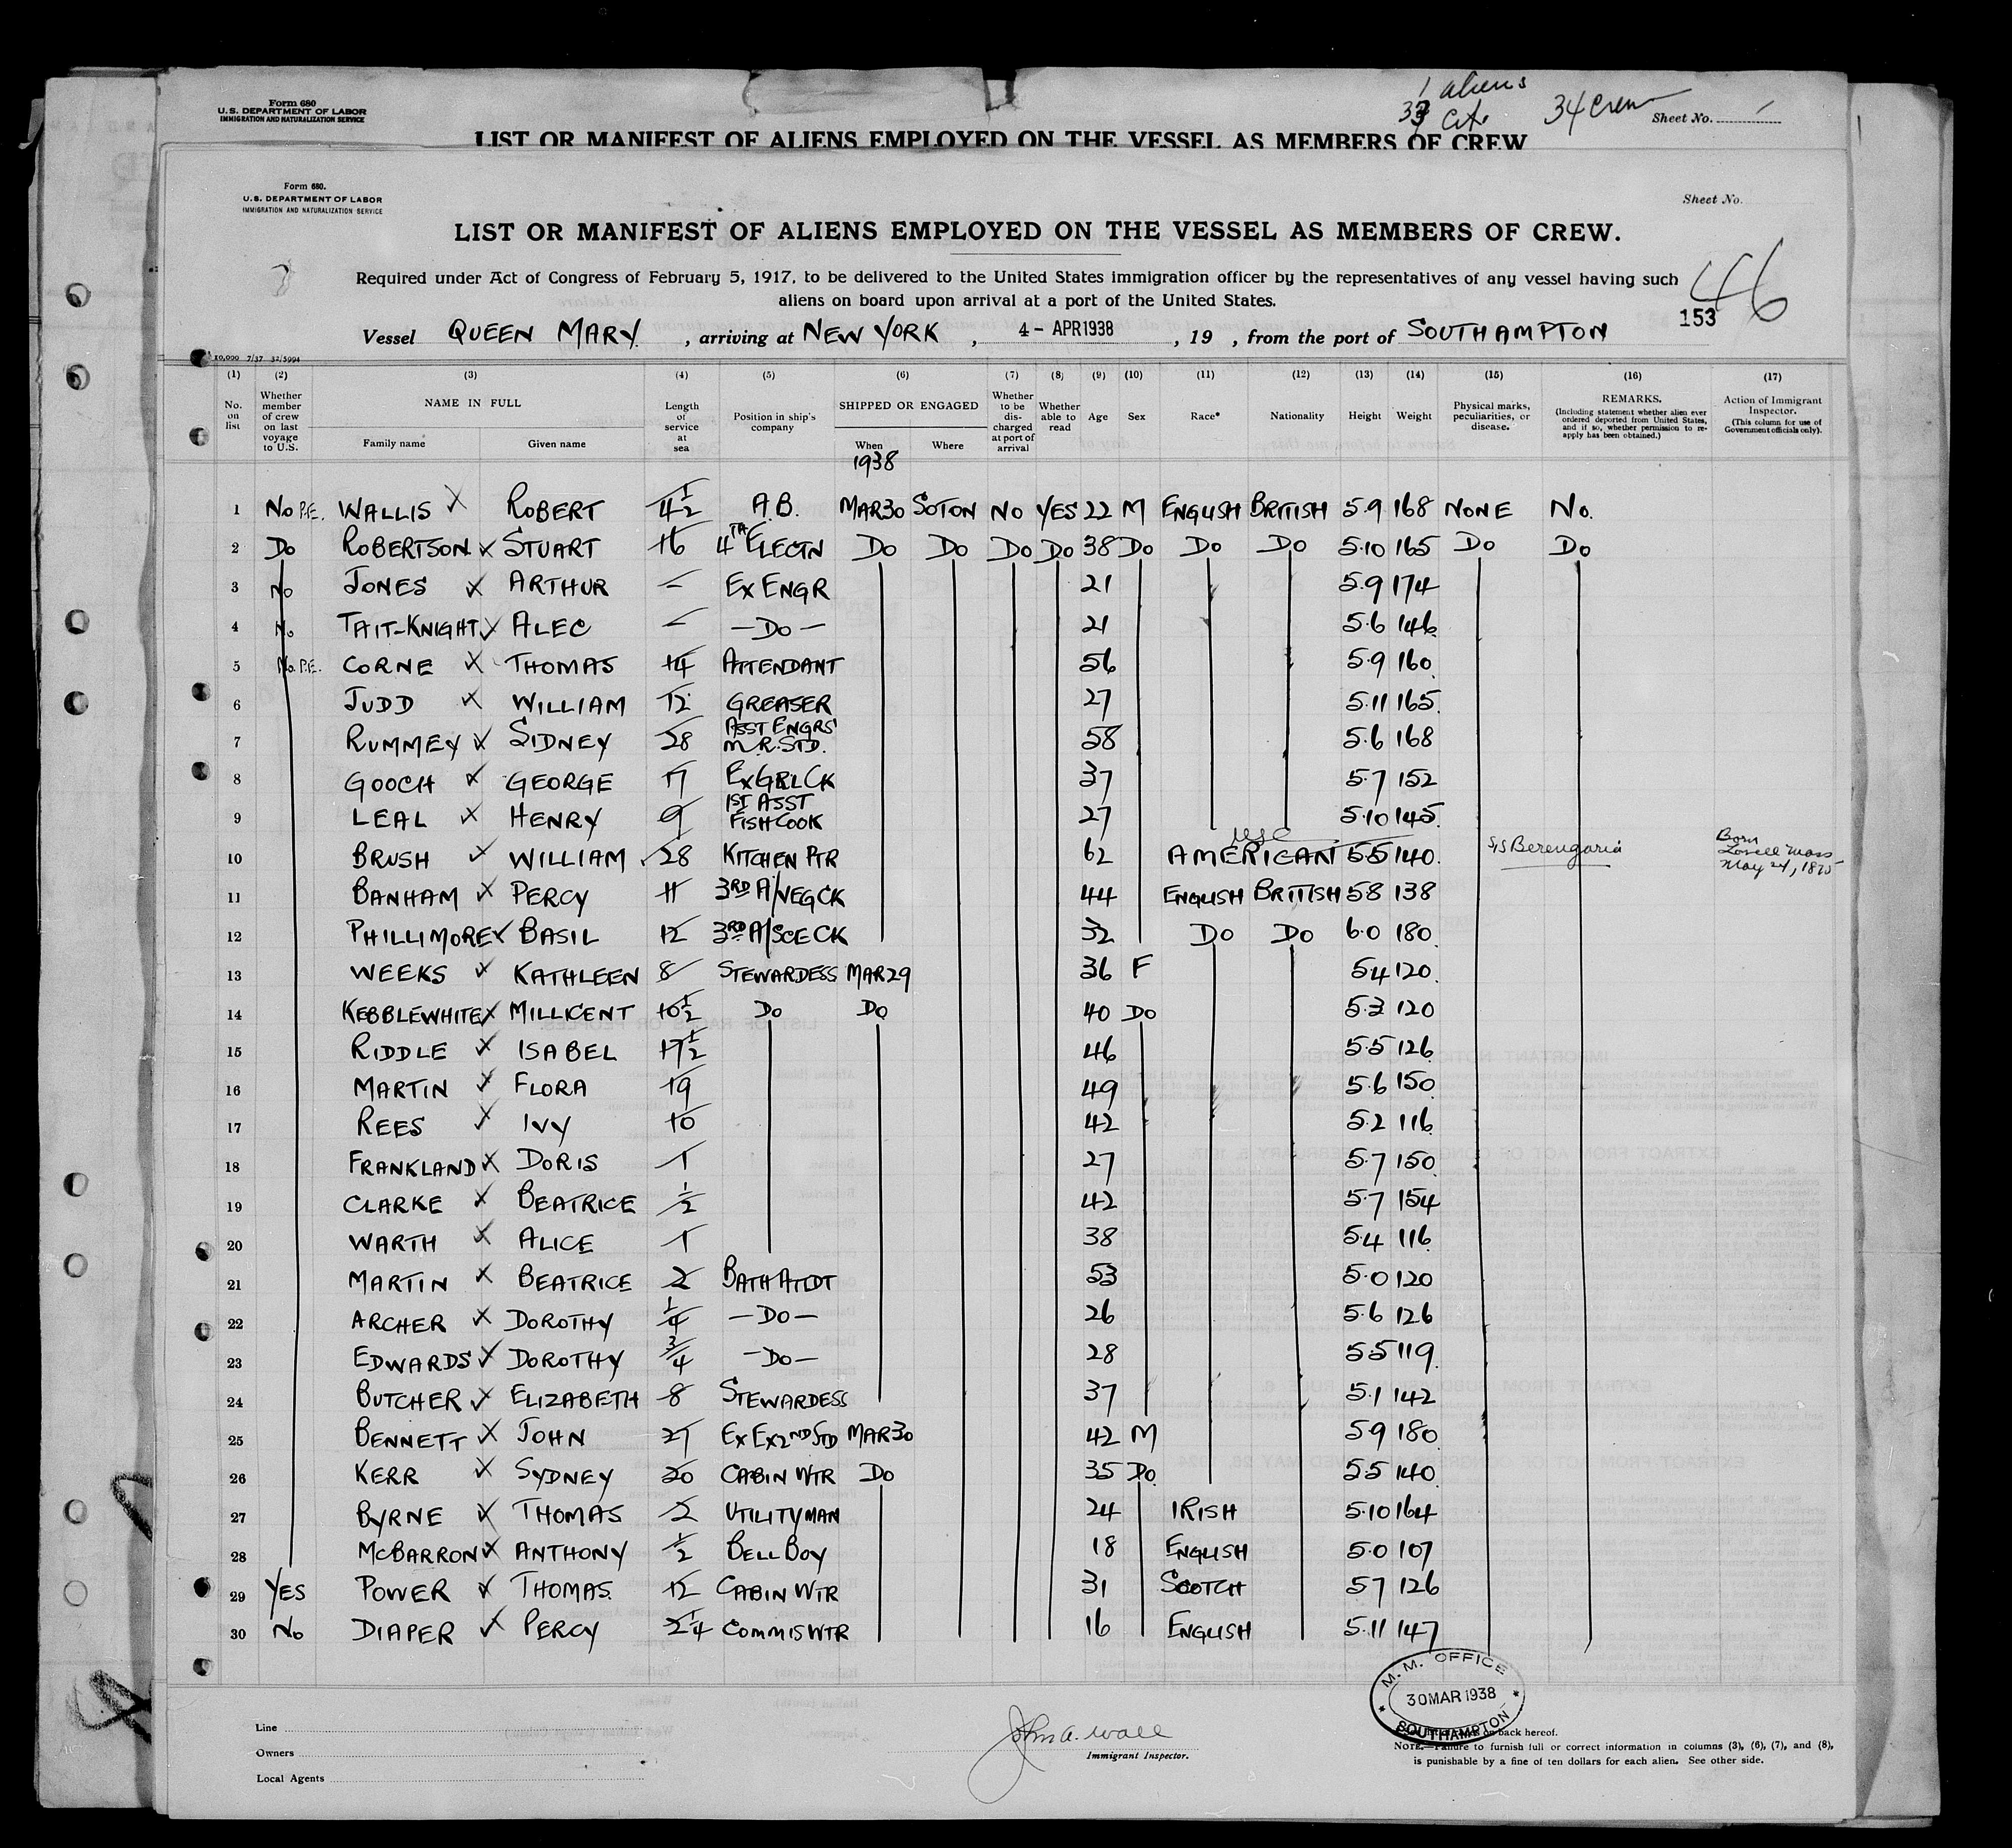 Form 680
U.S. DEPARTMENT OF LABOR
IMMIGRATION AND NATURALIZATION SERVICE
1 aliens
34 Crew
Sheet No.
LIST OR MANIFEST OF ALIENS EMPLOYED ON THE VESSEL AS MEMBERS OF CREW
Form 680.
U.S. DEPARTMENT OF LABOR
IMMIGRATION AND NATURALIZATION SERVICE
Sheet No.
LIST OR MANIFEST OF ALIENS EMPLOYED ON THE VESSEL AS MEMBERS OF CREW.
Required under Act of Congress of February 5, 1917, to be delivered to the United States immigration officer by the representatives of any vessel having such
aliens on board upon arrival at a port of the United States.
46
153
Vessel QUEEN MARY, arriving at NEW YORK, 4 - APR 1938, 19 , from the port of SOUTHAMPTON
10,000 7/37 32/5994
(1) (2) (3) (4) (5) (6) (7) (8) (9) (10) (11) (12) (13) (14) (15) (16) (17)
No. on list
Whether member of crew on last voyage to U.S.
NAME IN FULL
Family name Given name
Length of service at sea
Position in ship's company
SHIPPED OR ENGAGED
When Where
1938
Whether to be discharged at port of arrival
Whether able to read
Age
Sex
Race*
Nationality
Height
Weight
Physical marks, peculiarities, or disease.
REMARKS.
(Including statement whether alien ever ordered deported from United States, and if so, whether permission to re-apply has been obtained.)
Action of Immigrant Inspector.
(This column for use of Government officials only).
1 No P.E. WALLIS X ROBERT 4½ A.B. MAR 30 SOTON NO YES 22 M ENGLISH BRITISH 5.9 168 NONE NO.
2 Do ROBERTSON X STUART 16 4TH ELECTN Do Do Do Do 38 Do Do Do 5.10 165 Do Do
3 No JONES X ARTHUR — EX ENGR 21 5.9 174
4 No TAIT-KNIGHT X ALEC — —Do— 21 5.6 146
5 No P.E. CORNE X THOMAS 14 ATTENDANT 56 5.9 160
6 JUDD X WILLIAM 12 GREASER 27 5.11 165
7 RUMMEY X SIDNEY 28 ASST ENGRS' M.R. STD. 58 5.6 168
8 GOOCH X GEORGE 17 EX GRL CK 37 5.7 152
9 LEAL X HENRY 9 1ST ASST FISH COOK 27 5.10 145
10 BRUSH X WILLIAM 28 KITCHEN PTR 62 AMERICAN 5.5 140 S/S Berengaria Born Lowell Mass May 24, 1875
11 BANHAM X PERCY 11 3RD A/VEG CK 44 ENGLISH BRITISH 5.8 138
12 PHILLIMORE X BASIL 12 3RD A/SCE CK 32 Do Do 6.0 180
13 WEEKS X KATHLEEN 8 STEWARDESS MAR 29 36 F 5.4 120
14 KEBBLEWHITE X MILLICENT 10½ Do Do 40 Do 5.3 120
15 RIDDLE X ISABEL 17½ 46 5.5 126
16 MARTIN X FLORA 19 49 5.6 150
17 REES X IVY 10 42 5.2 116
18 FRANKLAND X DORIS 1 27 5.7 150
19 CLARKE X BEATRICE ½ 42 5.7 154
20 WARTH X ALICE 1 38 5.4 116
21 MARTIN X BEATRICE 2 BATH ATTDT 53 5.0 120
22 ARCHER X DOROTHY ¼ —Do— 26 5.6 126
23 EDWARDS X DOROTHY ¾ —Do— 28 5.5 119
24 BUTCHER X ELIZABETH 8 STEWARDESS 37 5.1 142
25 BENNETT X JOHN 27 EX EX 2ND STD MAR 30 42 M 5.9 180
26 KERR X SYDNEY 20 CABIN WTR Do 35 Do 5.5 140
27 BYRNE X THOMAS 2 UTILITYMAN 24 IRISH 5.10 164
28 MCBARRON X ANTHONY ½ BELL BOY 18 ENGLISH 5.0 107
29 YES POWER X THOMAS. 12 CABIN WTR 31 SCOTCH 5.7 126
30 No DIAPER X PERCY 2¼ COMMIS WTR 16 ENGLISH 5.11 147
M. M. OFFICE
30 MAR 1938
SOUTHAMPTON
Line
Owners
Local Agents
John A. Wall
Immigrant Inspector.
on back hereof.
NOTE.—Failure to furnish full or correct information in columns (3), (6), (7), and (8),
is punishable by a fine of ten dollars for each alien. See other side.